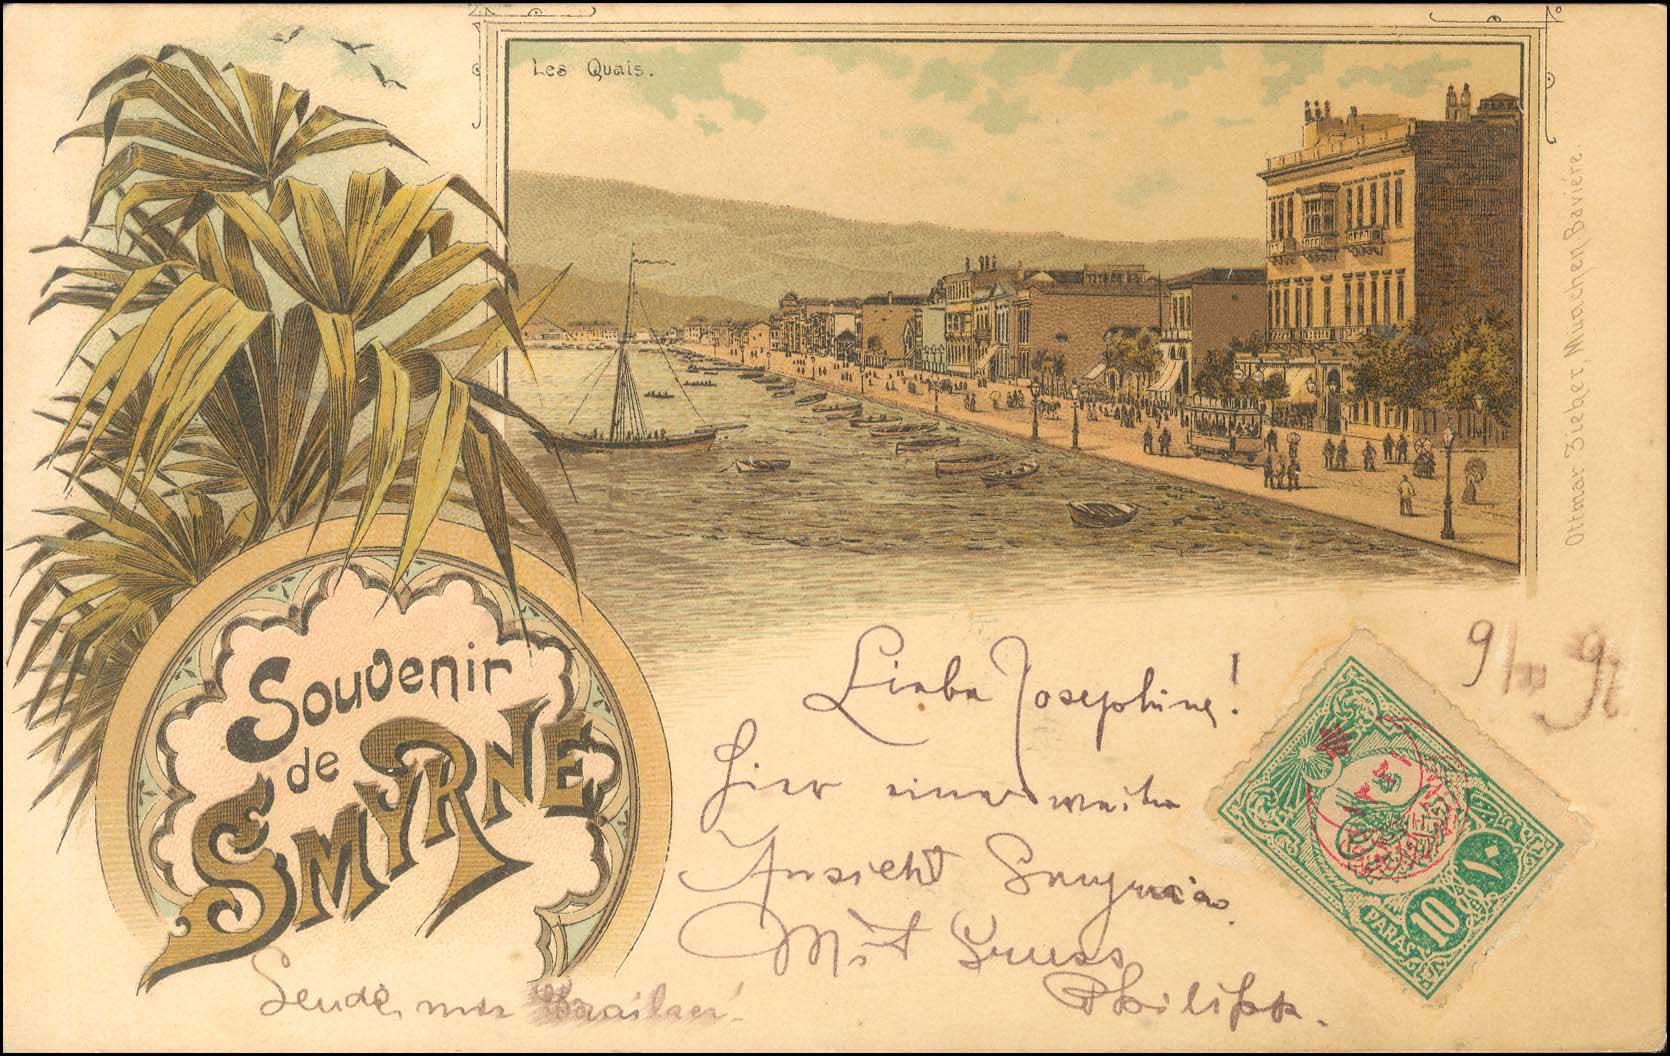 Les Quais.
Ottmar Zieher, Munchen, Bavière.
Souvenir
de
SMYRNE
Liebe Josephine!
Hier eine weitere
Ansicht Smyrna's.
Mit Gruss
Philipp.
Sende mir
9/ 97
10
PARAS
١٠